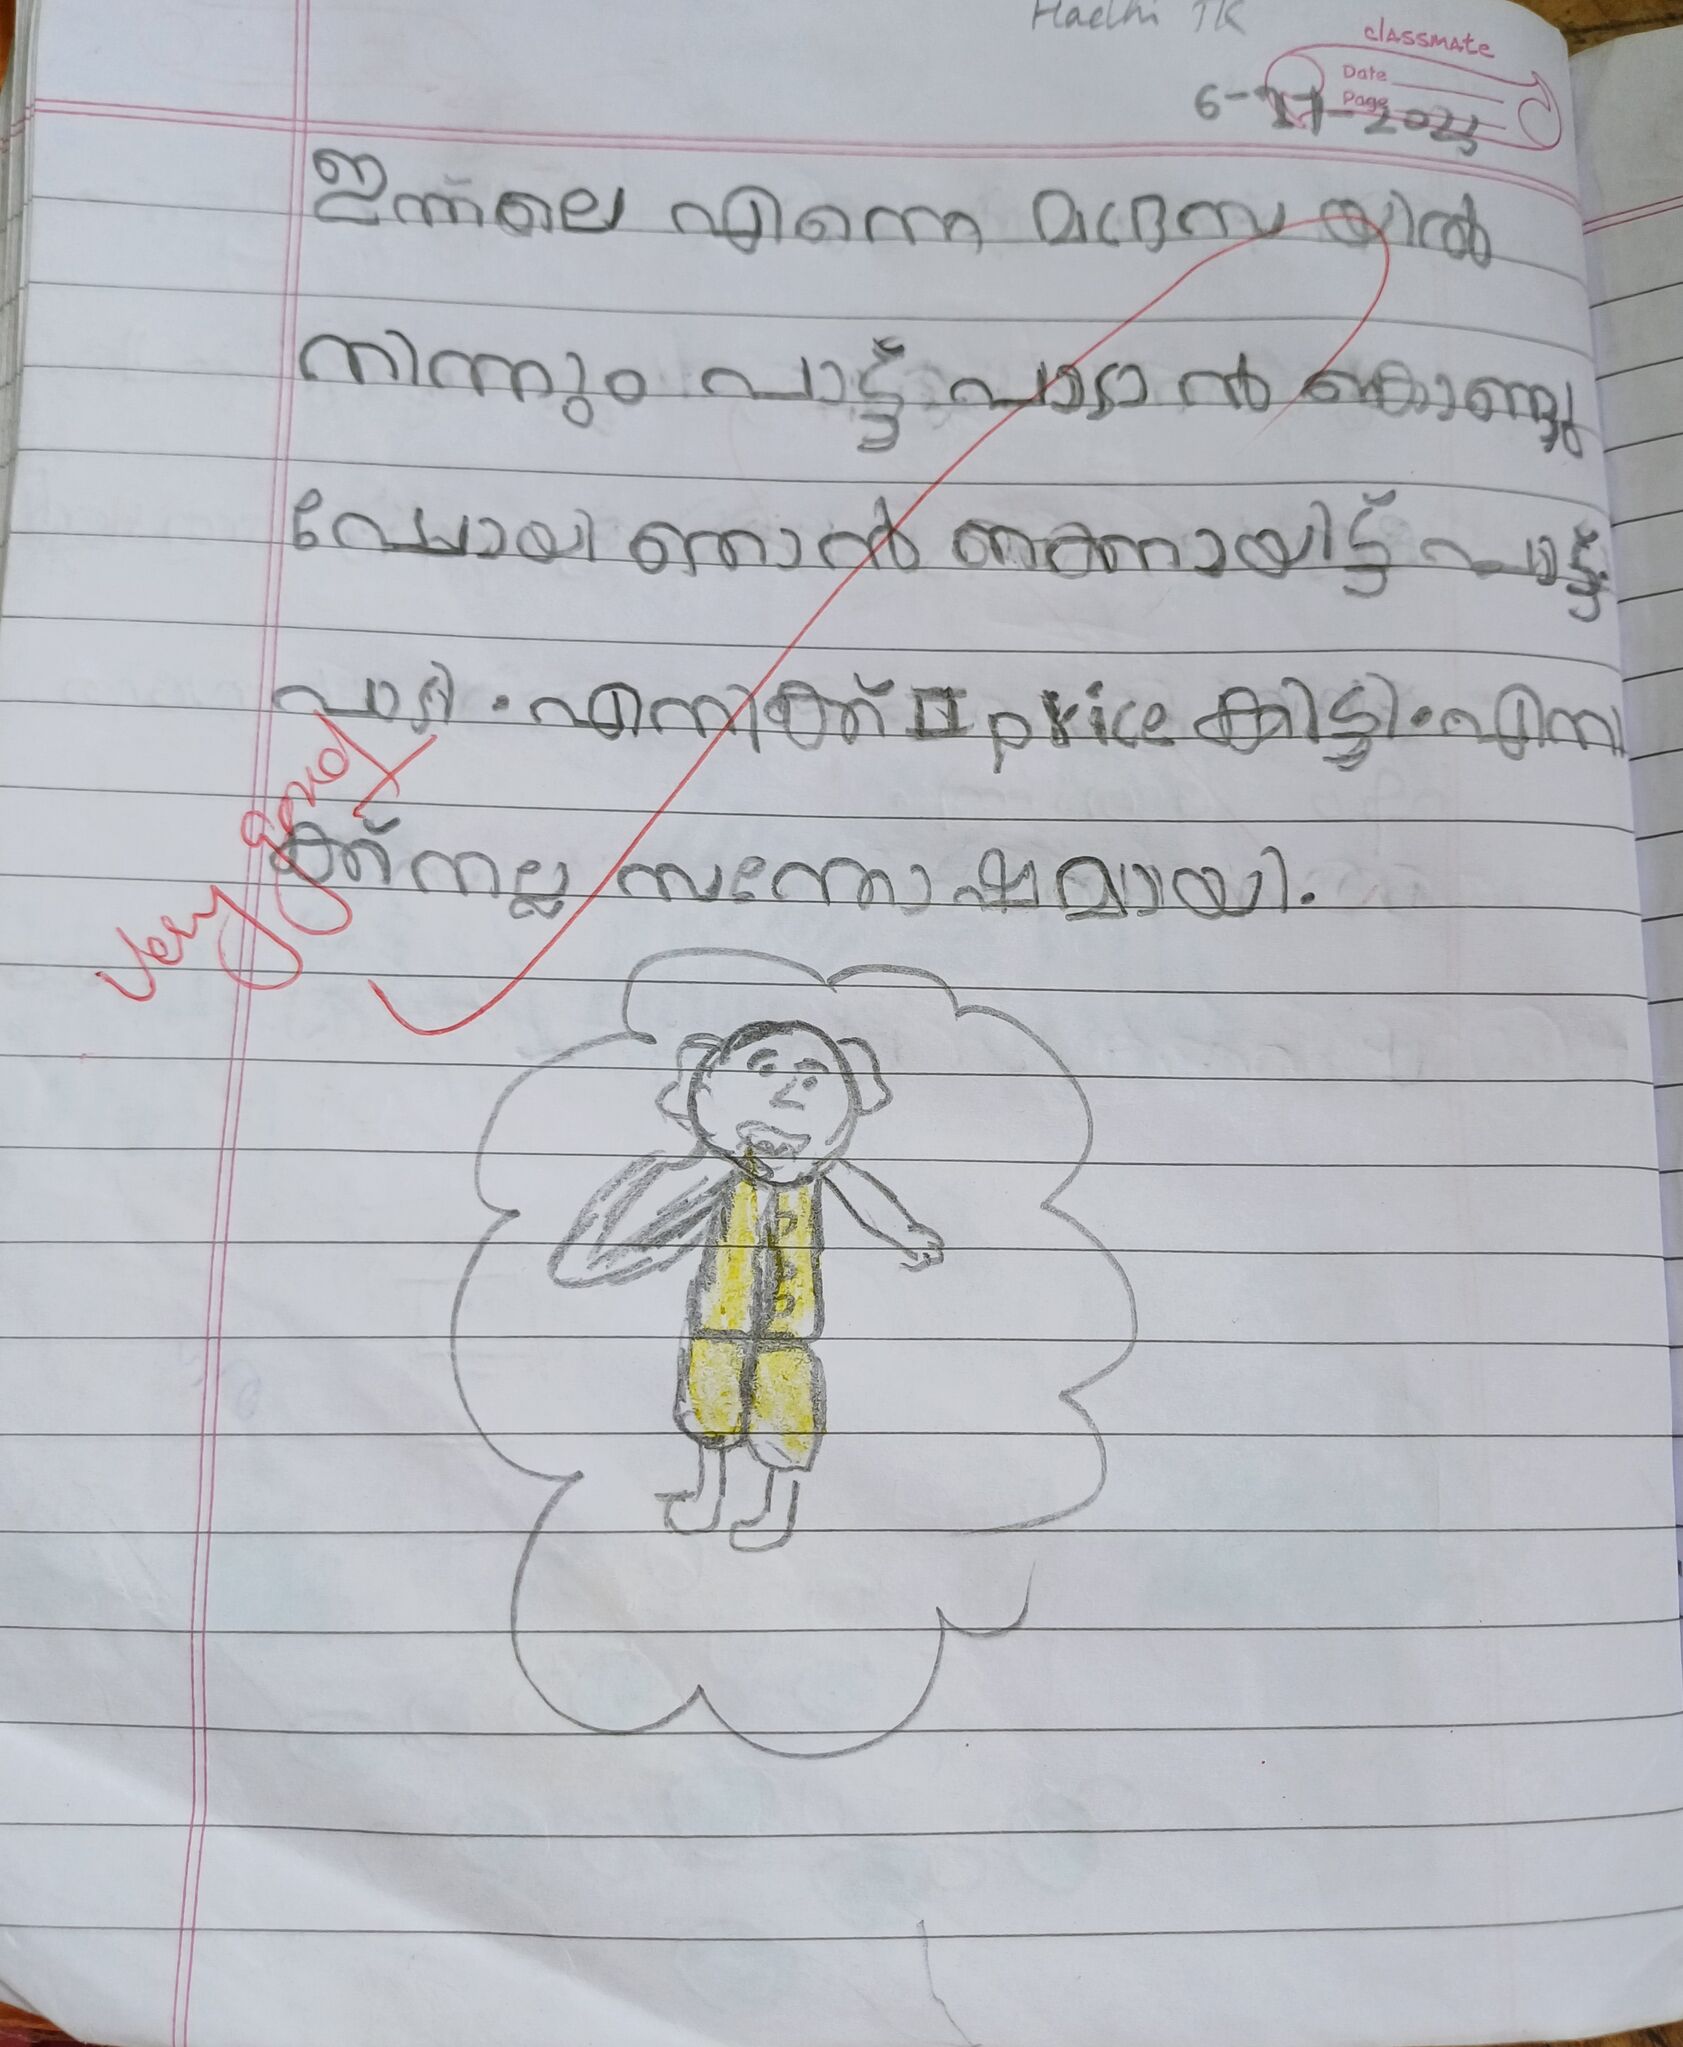 Haelhi TK
classmate
Date
Page
6-11-2023
ഇന്നലെ എന്നെ മദ്രസയിൽ
നിന്നും പാട്ട് പാടാൻ കൊണ്ടു
പോയി ഞാൻ നന്നായിട്ട് പാട്ട്
പാടി. എനിക്ക് II price കിട്ടി. എനി
ക്ക് നല്ല സന്തോഷമായി.
Very good